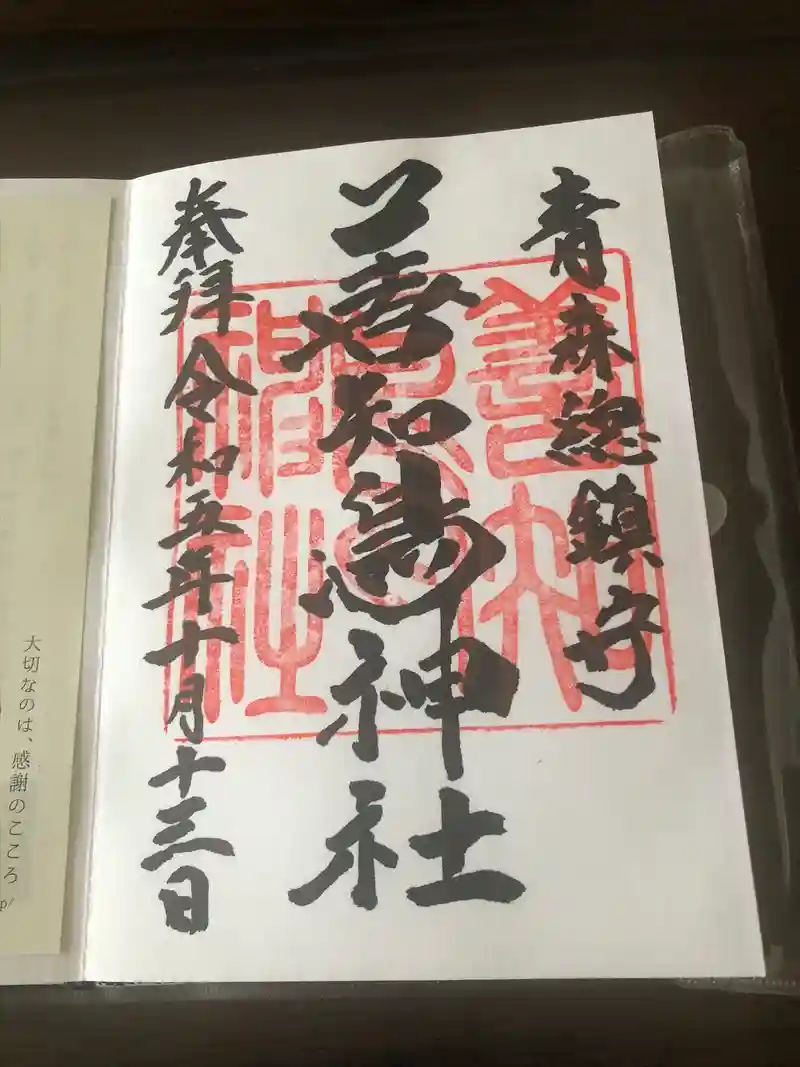 青森総鎮守
善知鳥神社
奉拝 令和五年十月十三日
善知鳥神社
大切なのは、感謝のこころ
p/